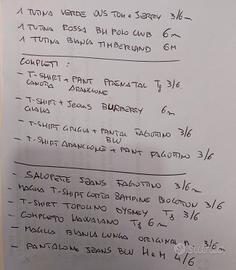 1 TUTINA VERDE OVS TOM e JERRY 3/6 m
1 TUTINA ROSSA BH POLO CLUB 6 m
1 TUTINA BIANCA TIMBERLAND 6M
COMPLETI :
- T-SHIRT + PANT PRENATAL Tg 3/6
ARANCIONE
- T-SHIRT + JEANS BURBERRY 6 m
GIALLA
- T-SHIRT GRIGIA + PANTAL FAGOTTINO 3/6
BLU
- T-SHIRT ARANCIONE + PANT FAGOTTINO 3/6
- SALOPETTE JEANS FAGOTTINO 3/6 m
- MAGLIA T-SHIRT COTTON BAMPINE 3/6 m
- T-SHIRT TOPOLINO DYSNEY Tg 3/6
- COMPLETO HAWAIANO Tg 6 m
- MAGLIA BIANCA LUNGA ORIGINAL 3/6
- PANTALONE JEANS BLU H&M 4/6
subito